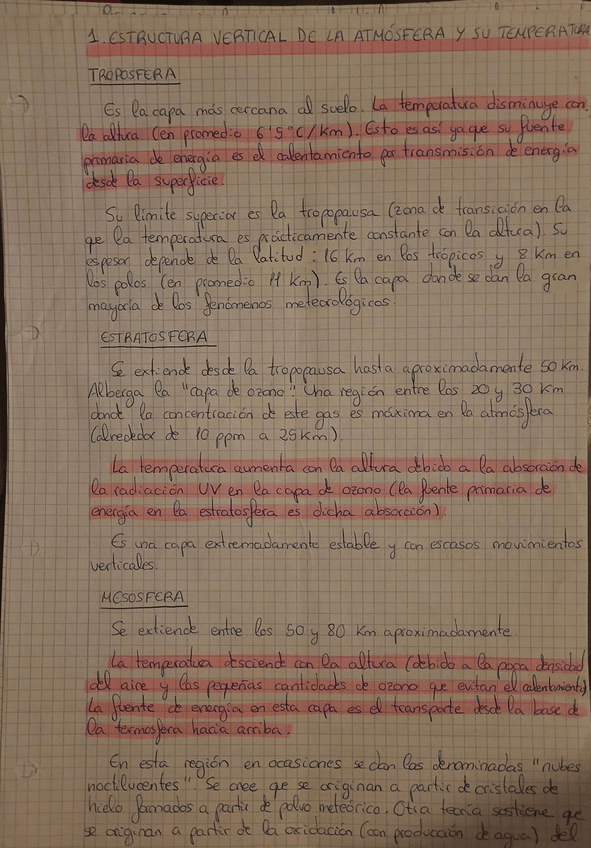 1. ESTRUCTURA VERTICAL DE LA ATMÓSFERA Y SU TEMPERATURA
TROPOSFERA
Es la capa más cercana al suelo. La temperatura disminuye con
la altura (en promedio 6'5°C/km). Esto es así ya que su fuente
primaria de energía es el calentamiento por transmisión de energía
desde la superficie.
Su límite superior es la tropopausa (zona de transición en la
que la temperatura es prácticamente constante con la altura). Su
espesor depende de la latitud: 16 km en los trópicos y 8 km en
los polos (en promedio 11 km). Es la capa donde se dan la gran
mayoría de los fenómenos meteorológicos.
ESTRATOSFERA
Se extiende desde la tropopausa hasta aproximadamente 50 km.
Alberga la "capa de ozono". Una región entre los 20 y 30 km
donde la concentración de este gas es máxima en la atmósfera
(alrededor de 10 ppm a 25 km).
La temperatura aumenta con la altura debido a la absorción de
la radiación UV en la capa de ozono (la fuente primaria de
energía en la estratosfera es dicha absorción)
Es una capa extremadamente estable y con escasos movimientos
verticales.
MESOSFERA
Se extiende entre los 50 y 80 km aproximadamente.
La temperatura desciende con la altura (debido a la poca densidad
del aire y las pequeñas cantidades de ozono que evitan el calentamiento)
La fuente de energía en esta capa es el transporte desde la base de
la termosfera hacia arriba.
En esta región en ocasiones se dan las denominadas "nubes
noctilucentes". Se cree que se originan a partir de cristales de
hielo formados a partir de polvo meteórico. Otra teoría sostiene que
se originan a partir de la oxidación (con producción de agua) del